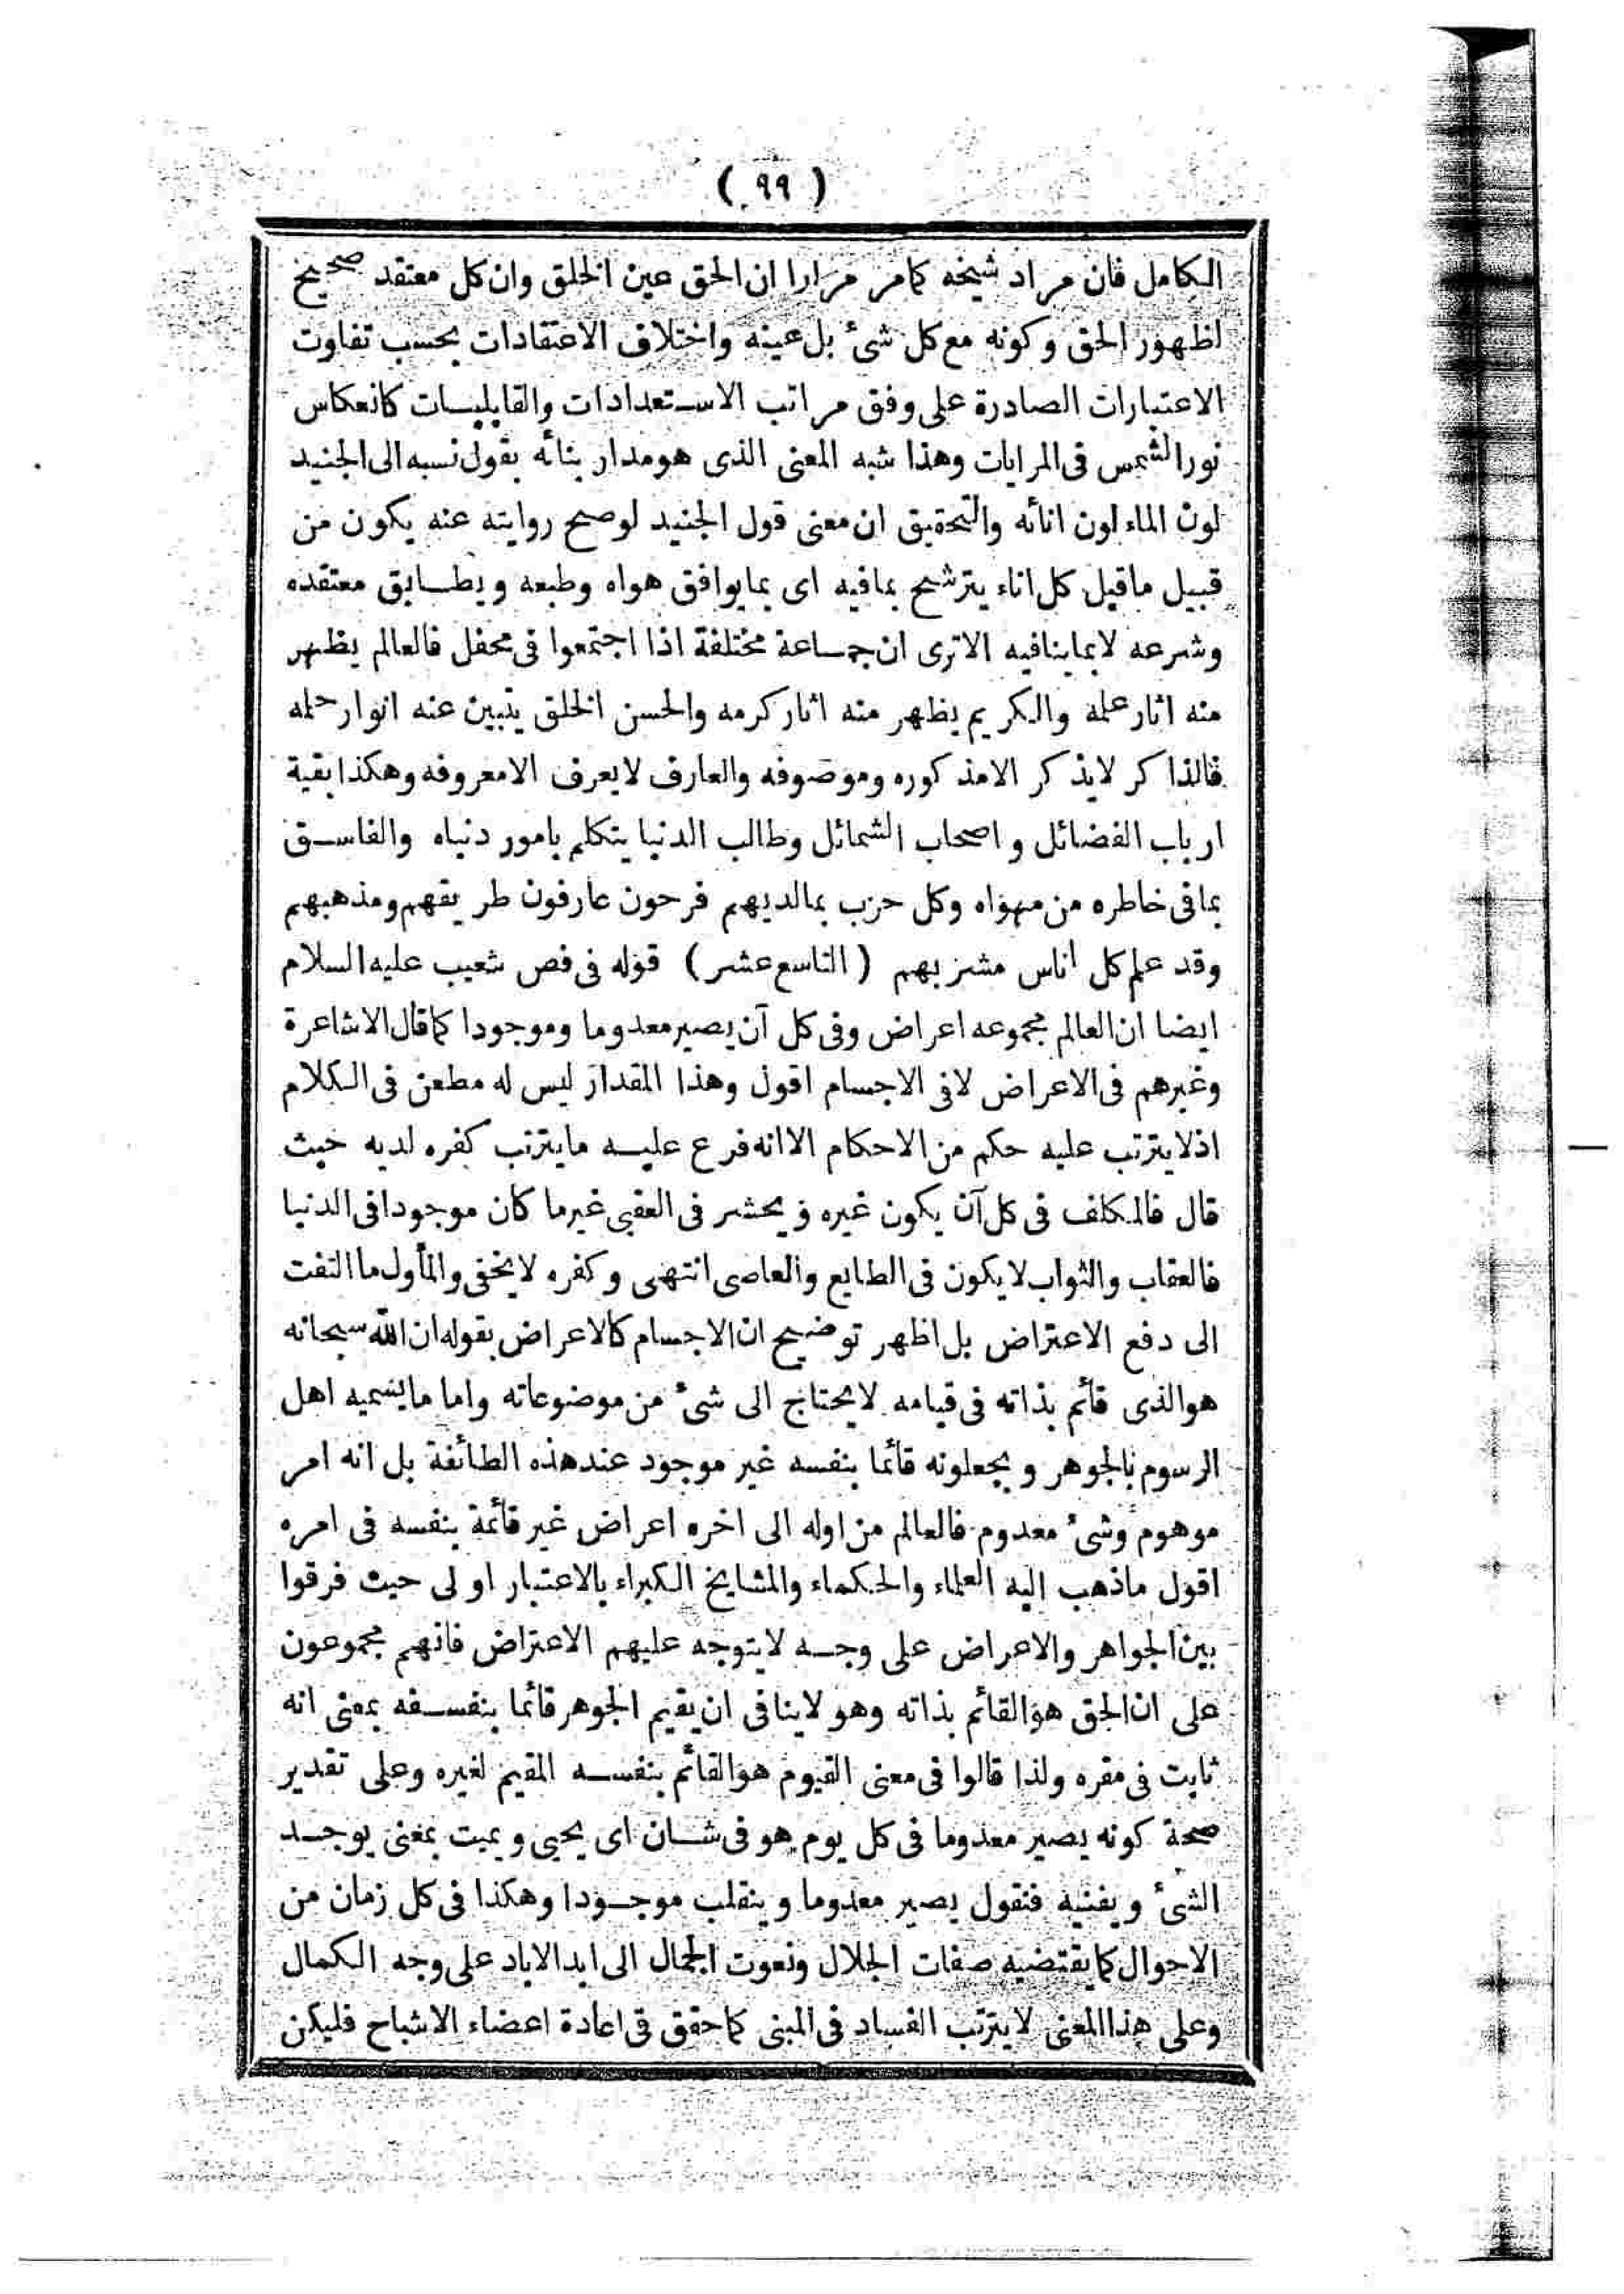 ( ٩٩ )
الكامل فان مراد شيخه كمامر مرارا ان الحق عين الخلق وان كل معتقد صحيح
لظهور الحق وكونه مع كل شئ بل عينه واختلاف الاعتقادات بحسب تفاوت
الاعتبارات الصادرة على وفق مراتب الاستعدادات والقابليات كانعكاس
نور الشمس فى المرايات وهذا شبه المعنى الذى هو مدار بنائه بقول نسبه الى الجنيد
لون الماء لون انائه والتحقيق ان معنى قول الجنيد لوصح روايته عنه يكون من
قبيل ماقيل كل اناء يترشح بمافيه اى بمايوافق هواه وطبعه ويطابق معتقده
وشرعه لابماينافيه الاترى ان جماعة مختلفة اذا اجتمعوا فى محفل فالعالم يظهر
منه اثار علمه والكريم يظهر منه اثار كرمه والحسن الخلق يتبين عنه انوار حلمه
فالذاكر لايذكر الامذكوره وموصوفه والعارف لايعرف الامعروفه وهكذا بقية
ارباب الفضائل واصحاب الشمائل وطالب الدنيا يتكلم بامور دنياه والفاسق
بمافى خاطره من مهواه وكل حزب بمالديهم فرحون عارفون طريقهم ومذهبهم
وقد علم كل اناس مشربهم (التاسع عشر) قوله فى فص شعيب عليه السلام
ايضا ان العالم مجموعه اعراض وفى كل آن يصير معدوما وموجودا كماقال الاشاعرة
وغيرهم فى الاعراض لافى الاجسام اقول وهذا المقدار ليس له مطعن فى الكلام
اذلايترتب عليه حكم من الاحكام الاانه فرع عليه مايترتب كفره لديه حيث
قال فالمكلف فى كل آن يكون غيره ويحشر فى العقبى غيرما كان موجودا فى الدنيا
فالعقاب والثواب لايكون فى الطايع والعاصى انتهى وكفره لايخفى والمأول ماالتفت
الى دفع الاعتراض بل اظهر توضيح ان الاجسام كالاعراض بقوله ان الله سبحانه
هوالذى قائم بذاته فى قيامه لايحتاج الى شئ من موضوعاته واما مايسميه اهل
الرسوم بالجوهر ويجعلونه قائما بنفسه غير موجود عند هذه الطائفة بل انه امر
موهوم وشئ معدوم فالعالم من اوله الى اخره اعراض غير قائمة بنفسه فى امره
اقول ماذهب اليه العلماء والحكماء والمشايخ الكبراء بالاعتبار اولى حيث فرقوا
بين الجواهر والاعراض على وجه لايتوجه عليهم الاعتراض فانهم مجموعون
على ان الحق هوالقائم بذاته وهو لاينافى ان يقيم الجوهر قائما بنفسه بمعنى انه
ثابت فى مقره ولذا قالوا فى معنى القيوم هوالقائم بنفسه المقيم لغيره وعلى تقدير
صحة كونه يصير معدوما فى كل يوم هو فى شان اى يحيى ويميت بمعنى يوجد
الشئ ويفنيه فنقول يصير معدوما وينقلب موجودا وهكذا فى كل زمان من
الاحوال كمايقتضيه صفات الجلال ونعوت الجمال الى ابد الاباد على وجه الكمال
وعلى هذا المعنى لايترتب الفساد فى المبنى كماحقق فى اعادة اعضاء الاشباح فليكن